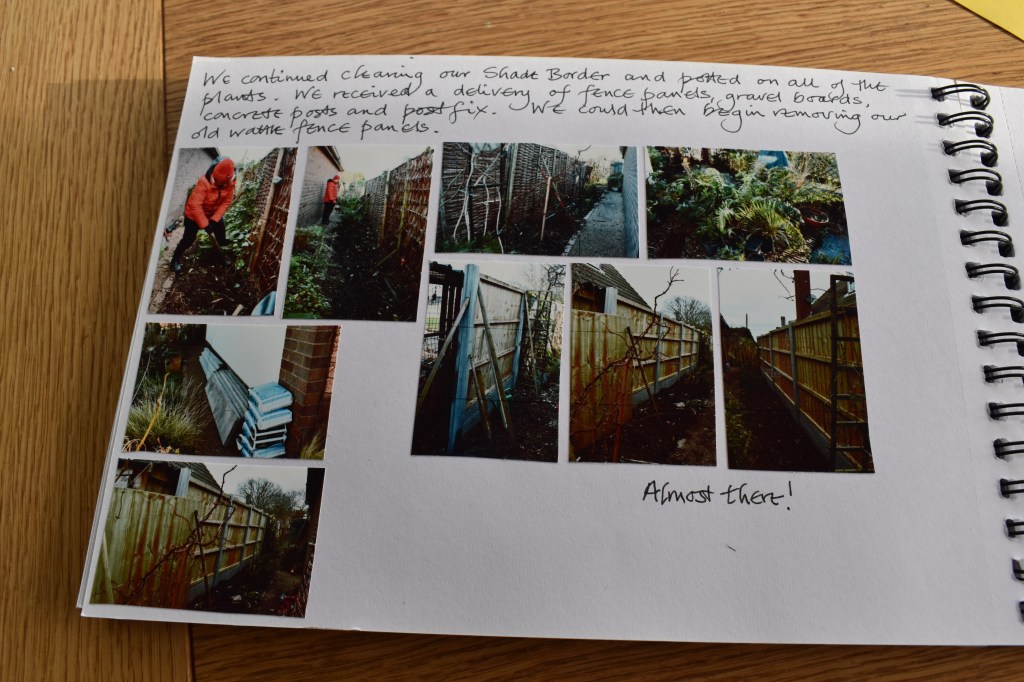 We continued clearing our Shade Border and potted on all of the
plants. We received a delivery of fence panels, gravel boards,
concrete posts and post fix. We could then begin removing our
old wattle fence panels.
Almost there!